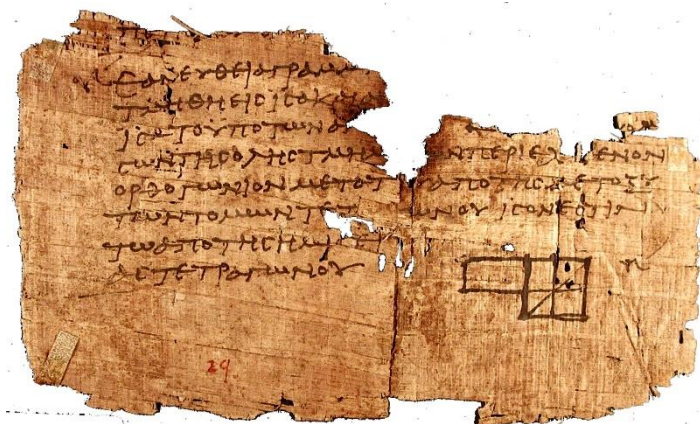 ΕΑΝ ΕΥΘΕΙΑ ΓΡΑΜΜ
ΤΜΗΘΗ ΕΙϹ ΙϹΑ ΚΑΙ
ΙϹΑ ΤΟ ΥΠΟ ΤΩΝ ΑΝ
ϹΩΝ ΤΗϹ ΟΛΗϹ ΤΜΗ ΩΝ ΠΕΡΙΕΧΟΜΕΝΟΝ
ΟΡΘΟΓΩΝΙΟΝ ΜΕΤΑ ΤΟΥ ΑΠΟ ΤΗϹ ΜΕΤΟΞΥ
ΤΩΝ ΤΟΜΩΝ ΤΕΤ ΩΝΟΥ ΙϹΟΝ ΕϹΤΙΝ
ΤΩ ΑΠΟ ΤΗϹ ΗΜΙϹΕΙ
ΑϹ ΤΕΤΡΑΓΩΝΟΥ
29